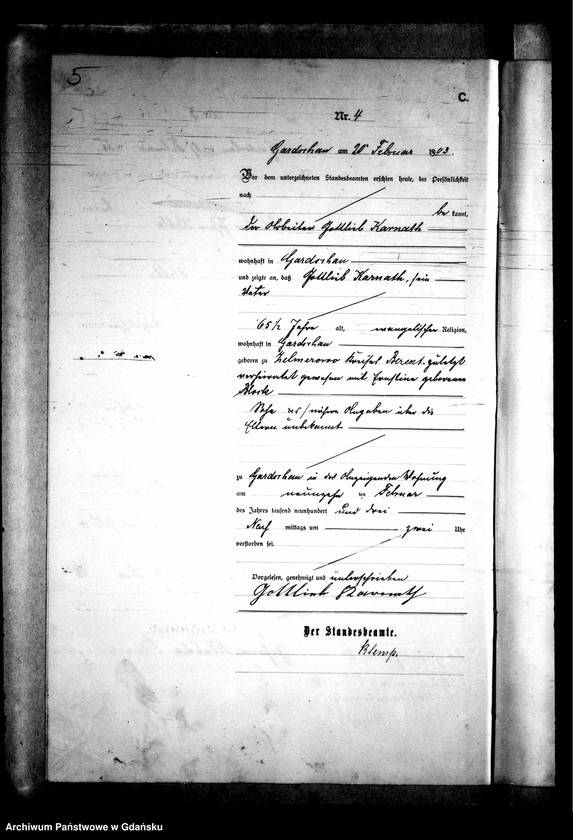 5
C.
Nr. 4
Gardschau am 20 Februar 1903.
Vor dem unterzeichneten Standesbeamten erschien heute, der Persönlichkeit
nach
be kannt,
der Arbeiter Gottlieb Karnath
wohnhaft in Gardschau
und zeigte an, daß Gottlieb Karnath, sein
Vater
65 1/2 Jahre alt, evangelischer Religion,
wohnhaft in Gardschau
geboren zu Kreises Berent zuletzt
verheirathet gewesen mit Ernstine geborenen
Sohn des / nähere Angaben über die
Eltern unbekannt
zu Gardschau in des Anzeigenden Wohnung
am neunzehn ten Februar
des Jahres tausend neunhundert und drei
Nach mittags um zwei Uhr
verstorben sei.
Vorgelesen, genehmigt und unterschrieben
Gottlieb Karnath
Der Standesbeamte.
Klemp.
Archiwum Państwowe w Gdańsku